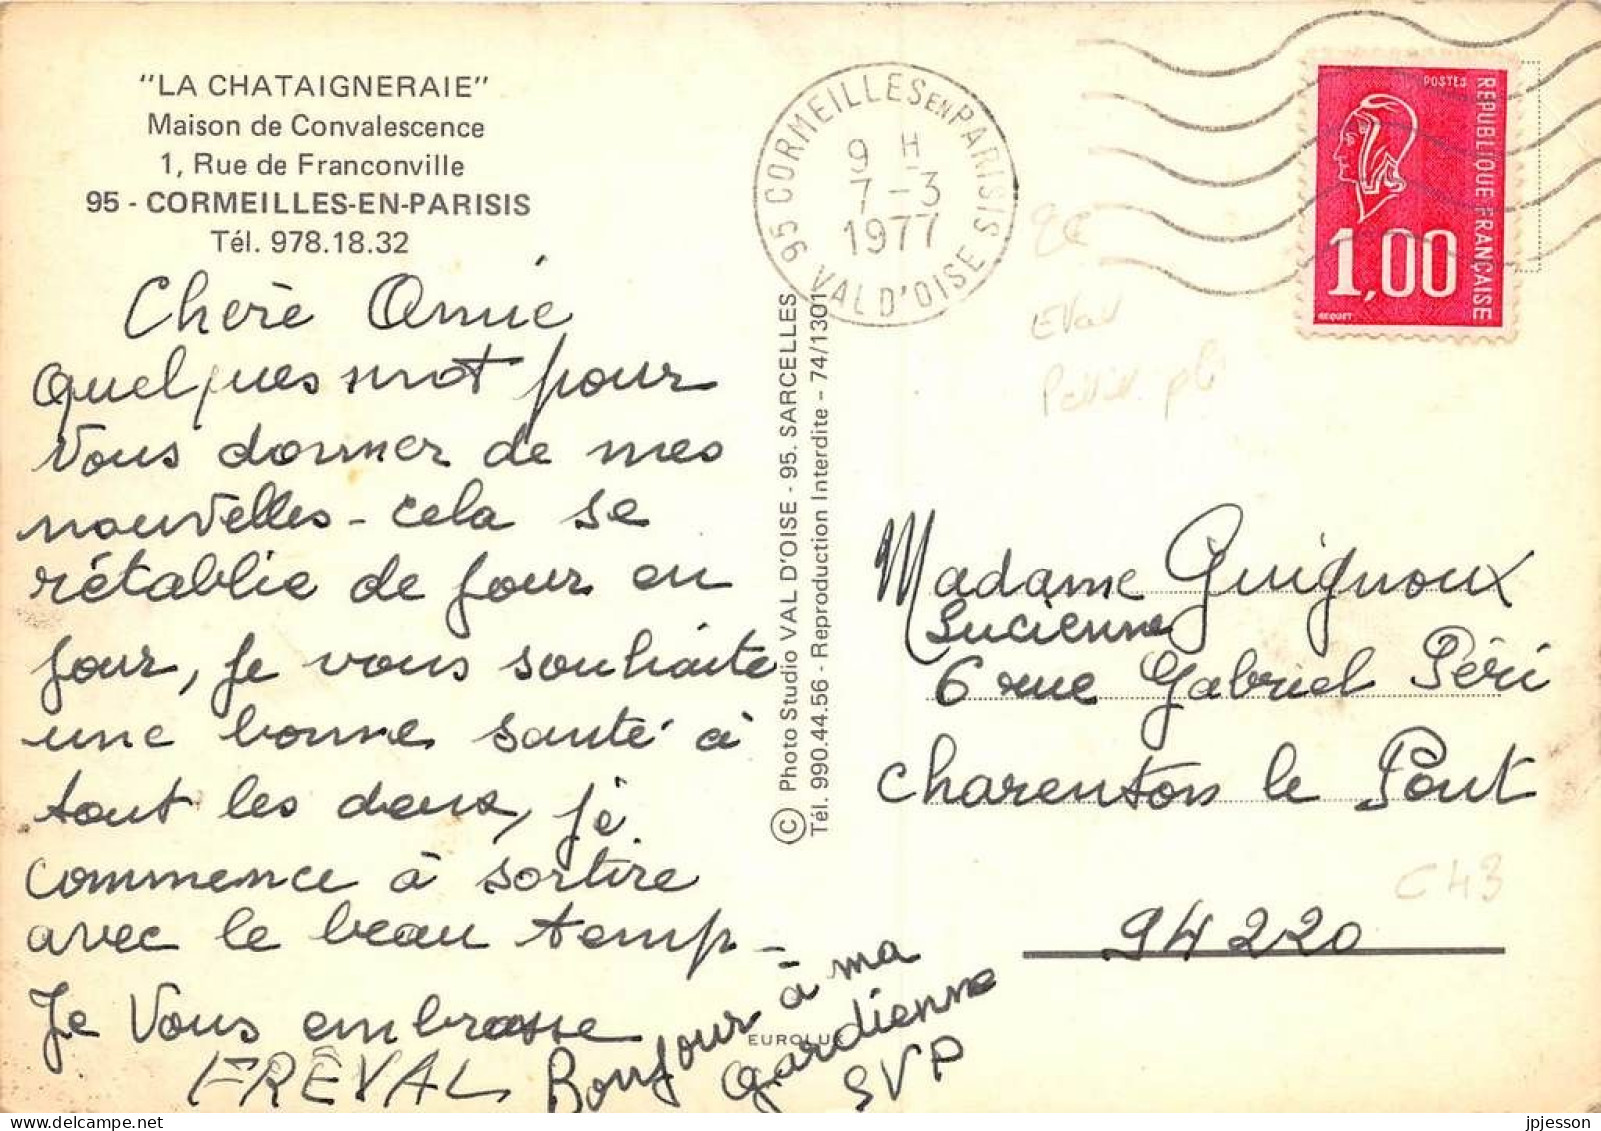 "LA CHATAIGNERAIE"
Maison de Convalescence
1, Rue de Franconville
95 - CORMEILLES-EN-PARISIS
Tél. 978.18.32
Chère Amie
quelques mot pour
vous donner de mes
nouvelles - cela se
rétablie de jour en
jour, je vous souhaite
une bonne santé à
tout les deux, je
commence à sortire
avec le beau temp -
Je Vous embrasse
FREVAL
Bonjour à ma
gardienne
SVP
EUROLUX
© Photo Studio VAL D'OISE - 95. SARCELLES
Tél. 990.44.56 - Reproduction Interdite - 74/1301
95 CORMEILLES EN PARISIS
9 H
7 - 3
1977
VAL D'OISE
POSTES
REPUBLIQUE FRANÇAISE
1,00
BEQUET
Madame Guignoux
Lucienne
6 rue Gabriel Péri
Charenton le Pont
94220
C43
jpjesson